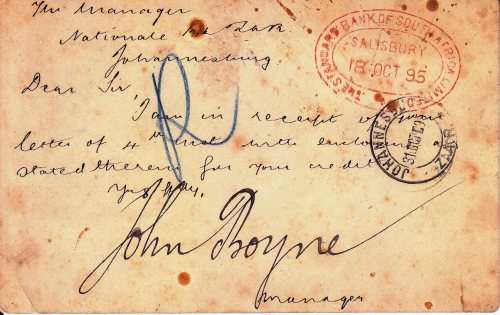 The Manager
Nationale Bk ZAR
Johannesburg
Dear Sir
I am in receipt of your
letter of 4th inst with enclosure
stated therein for your credit
Yrs
John Boyne
Manager
THE STANDARD BANK OF SOUTH AFRICA LIMITED
SALISBURY
18 OCT 95
JOHANNESBURG
Z.A.R.